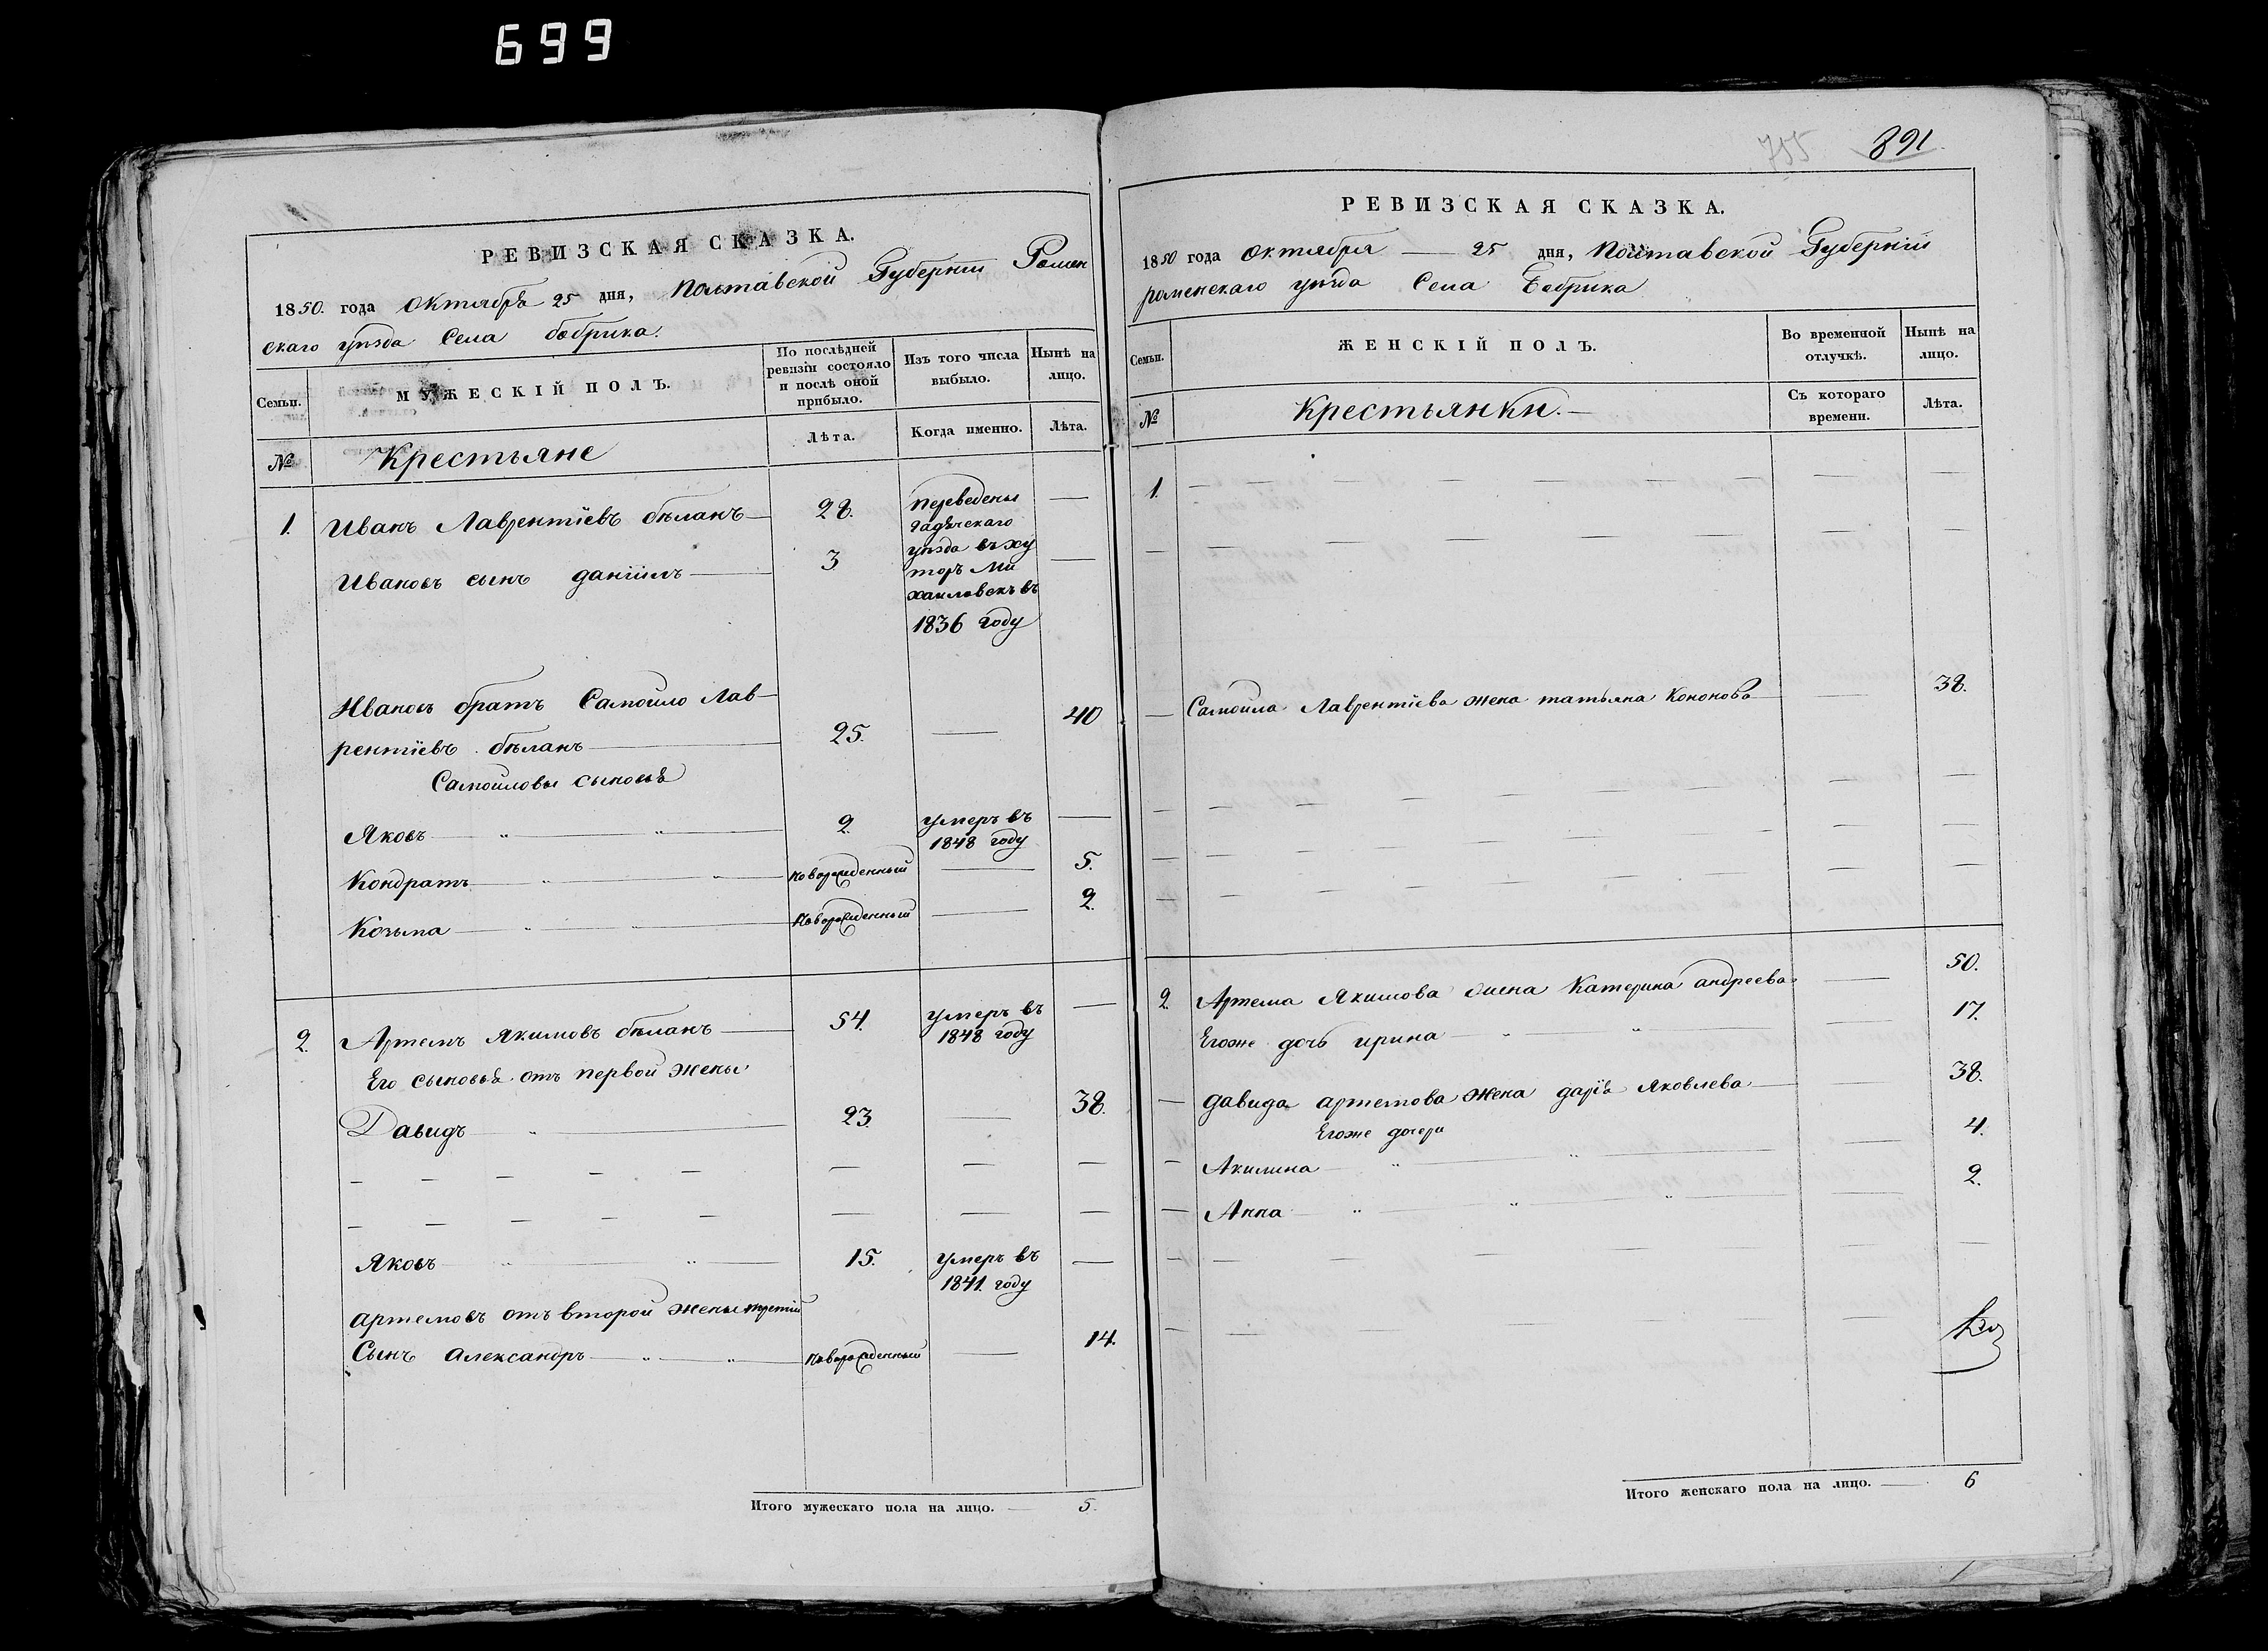 699
РЕВИЗСКАЯ СКАЗКА.
1850. года Октября 25 дня, Полтавской Губерніи Ромен
скаго уѣзда Села бобрика.
Семьи.
МУЖЕСКІЙ ПОЛЪ.
По послѣдней ревизіи состояло и послѣ оной прибыло.
Изъ того числа выбыло.
Нынѣ на лицо.
№
Крестьяне
Лѣта.
Когда именно.
Лѣта.
1. Иванъ Лаврентіевъ бѣланъ — 28. переведены —
гадячскаго
Ивановъ сынъ даніилъ — 3 уѣзда въ ху —
торъ Ми
хаиловскъ въ
1836 году
Ивановъ братъ Самойло Лав-
рентіевъ бѣланъ — 25. — 40
Самойловы сыновья
Яковъ — 2. умеръ въ —
1848 году
Кондратъ — новорожденный — 5.
Козьма — новорожденный — 2.
2. Артемъ Якимовъ бѣланъ — 54. умеръ въ —
1848 году
Его сыновья отъ первой жены
Давидъ — 23. — 38.
Яковъ — 15. умеръ въ —
1841. году
артемовъ отъ второй жены третій
Сынъ александръ — новорожденный — 14.
Итого мужескаго пола на лицо. — 5.
755 891
РЕВИЗСКАЯ СКАЗКА.
1850 года Октября — 25 дня, Полтавской Губерніи
роменскаго уѣзда Села Бобрика
Семьи.
ЖЕНСКІЙ ПОЛЪ.
Во временной отлучкѣ.
Нынѣ на лицо.
№
Крестьянки. —
Съ котораго времени.
Лѣта.
1.
— Самойла Лаврентіева жена татьяна Кононова — 38.
2. Артема Якимова жена Катерина андреева — 50.
Егоже дочь ирина — 17.
— давида артемова жена дарія Яковлева — 38.
Егоже дочери
— Акилина — 4.
— Анна — 2.
Итого женскаго пола на лицо. — 6